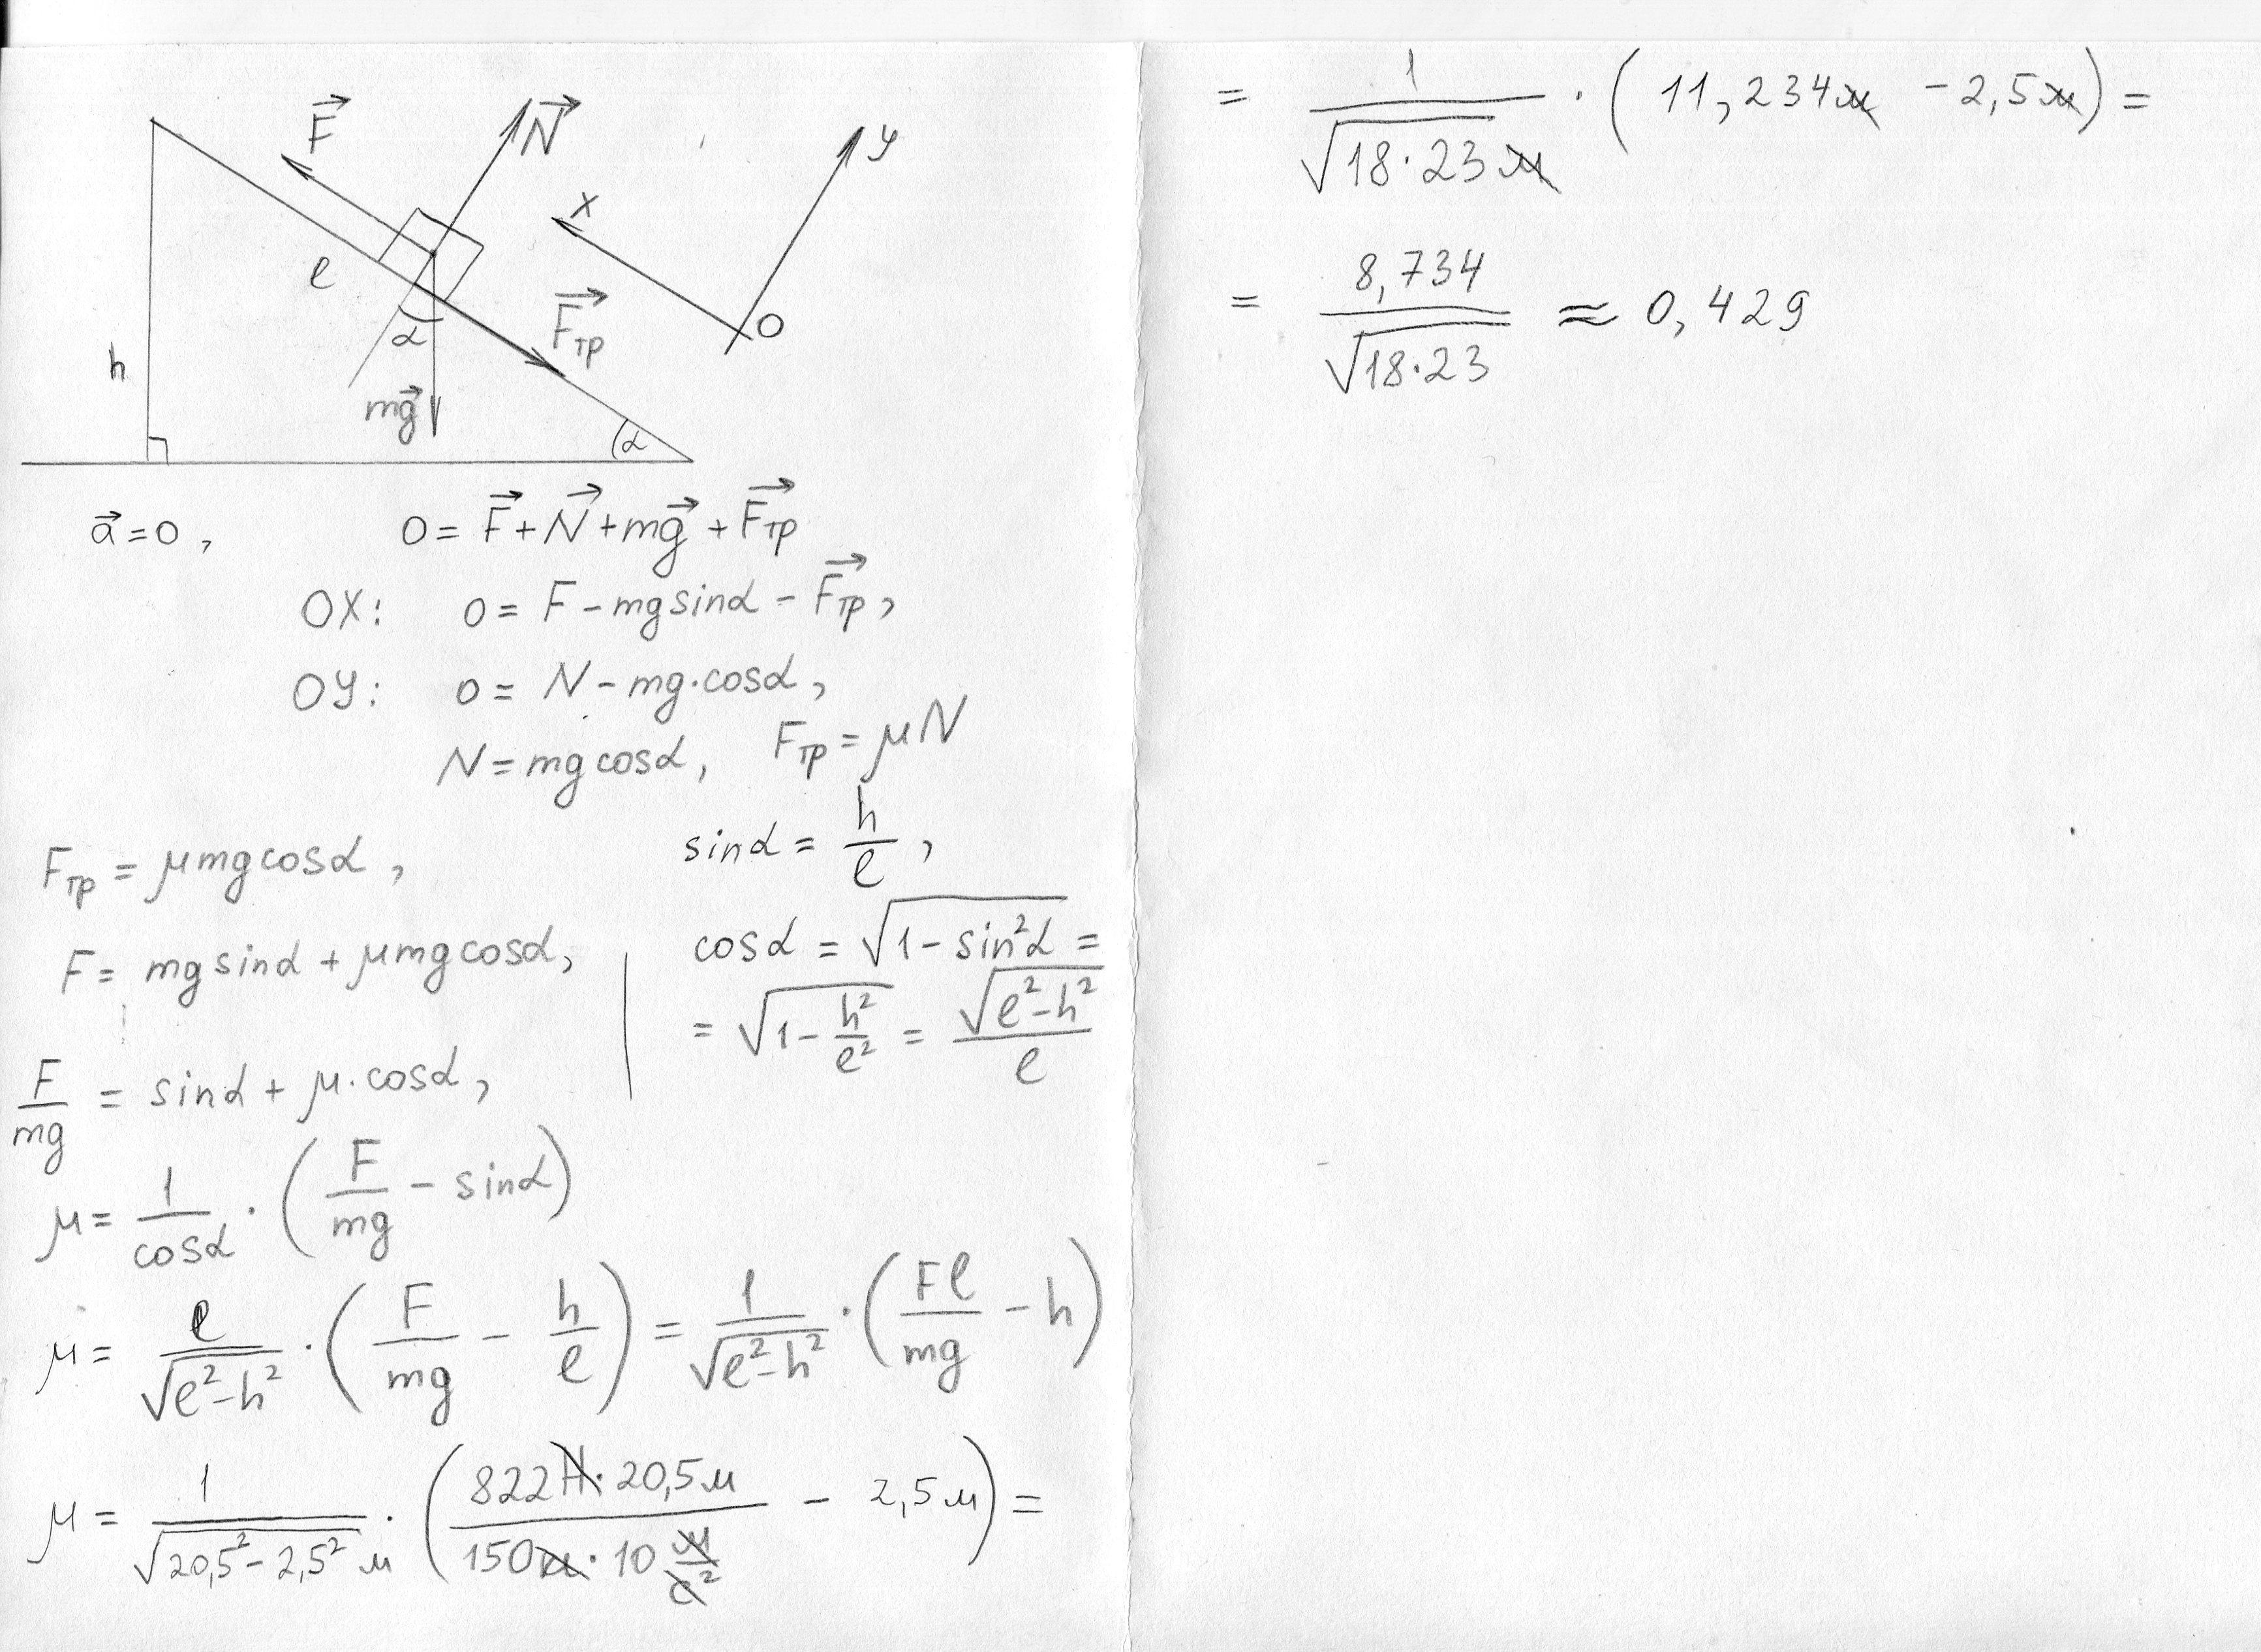 F⃗ N⃗ y
x
ℓ α F⃗тр O
h
mg⃗ α
a⃗ = 0, 0 = F⃗ + N⃗ + mg⃗ + F⃗тр
OX: 0 = F − mg sinα − F⃗тр,
OY: 0 = N − mg·cosα,
N = mg cosα, Fтр = μN
Fтр = μmg cosα,
F = mg sinα + μmg cosα,
F/mg = sinα + μ·cosα,
sinα = h/ℓ,
cosα = √(1 − sin²α) =
= √(1 − h²/ℓ²) = √(ℓ² − h²)/ℓ
μ = 1/cosα · (F/mg − sinα)
μ = ℓ/√(ℓ² − h²) · (F/mg − h/ℓ) = 1/√(ℓ² − h²) · (Fℓ/mg − h)
μ = 1/(√(20,5² − 2,5²) м) · (822Н · 20,5м/(150кг · 10 м/с²) − 2,5м) =
= 1/(√(18·23) м) · (11,234м − 2,5м) =
= 8,734/√(18·23) ≈ 0,429